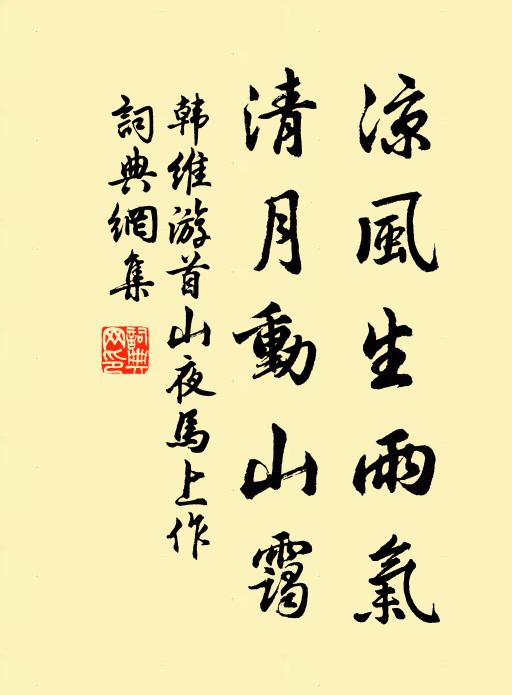 涼風生雨氣
清月動山靄
韩維游首山夜馬上作
詞典網集
詞典网印